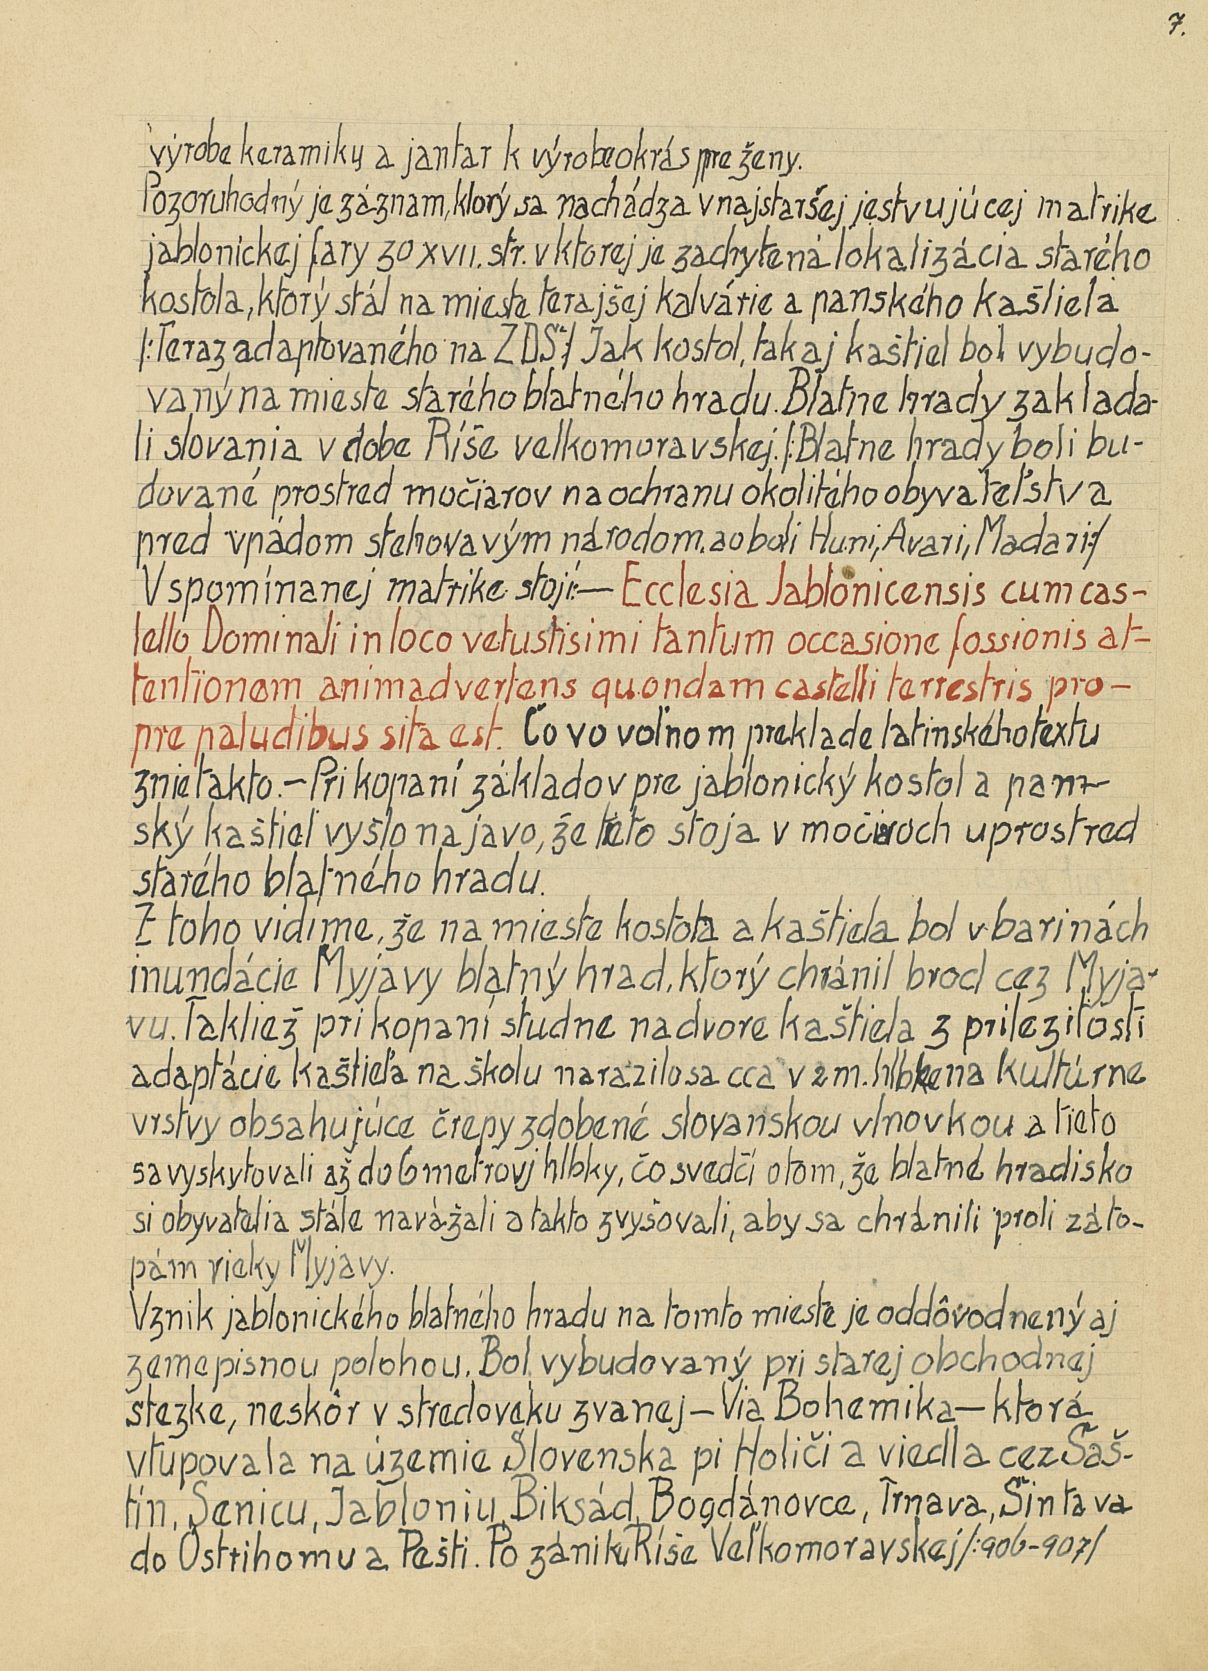 7.
výrobe keramiky a jantar k výrobe okrás pre ženy.
Pozoruhodný je záznam, ktorý sa nachádza v najstaršej jestvujúcej matrike
jablonickej fary zo XVII. str. v ktorej je zachytená lokalizácia starého
kostola, ktorý stál na mieste terajšej kalvárie a panského kaštiela
/:Teraz adaptovaného na ZDŠ:/ Jak kostol, tak aj kaštiel bol vybudo-
vaný na mieste starého blatného hradu. Blatne hrady zaklada-
li slovania v dobe Ríše velkomoravskej. /:Blatne hrady boli bu-
dované prostred močiarov na ochranu okolitého obyvateľstva
pred vpádom stehovavým národom. ao boli Huni, Avari, Madari:/
V spomínanej matrike stojí:— Ecclesia Jablonicensis cum cas-
tello Dominali in loco vetustisimi tantum occasione fossionis at=
tentionem animadvertens quondam castelli terrestris pro-
pre paludibus sita est. Čo vo voľnom preklade latinského textu
znie takto.— Pri kopaní základov pre jablonický kostol a pan-
ský kaštieľ vyšlo na javo, že tieto stoja v močiaroch uprostred
starého blatného hradu.
Z toho vidíme, že na mieste kostola a kaštiela bol v barinách
inundácie Myjavy blatný hrad, ktorý chránil brod cez Myja-
vu. Takliež pri kopaní studne na dvore kaštiela z prilezitosti
adaptácie kaštieľa na školu narazilo sa cca v 2 m. hlbke na kultúrne
vrstvy obsahujúce črepy zdobené slovanskou vlnovkou a tieto
sa vyskytovali až do 6 metrovj hlbky, čo svedčí o tom, že blatné hradisko
si obyvatelia stále navážali a takto zvyšovali, aby sa chránili proti záto-
pám rieky Myjavy.
Vznik jablonického blatného hradu na tomto mieste je oddôvodnený aj
zemepisnou polohou. Bol vybudovaný pri starej obchodnej
stezke, neskôr v stredoveku zvanej — Via Bohemika — ktorá
vtupovala na územie Slovenska pi Holiči a viedla cez Šaš-
tín, Senicu, Jabloniu, Biksád, Bogdánovce, Trnava, Šintava
do Ostrihomu a Pešti. Po zániku Ríše Veľkomoravskej /:906-907/